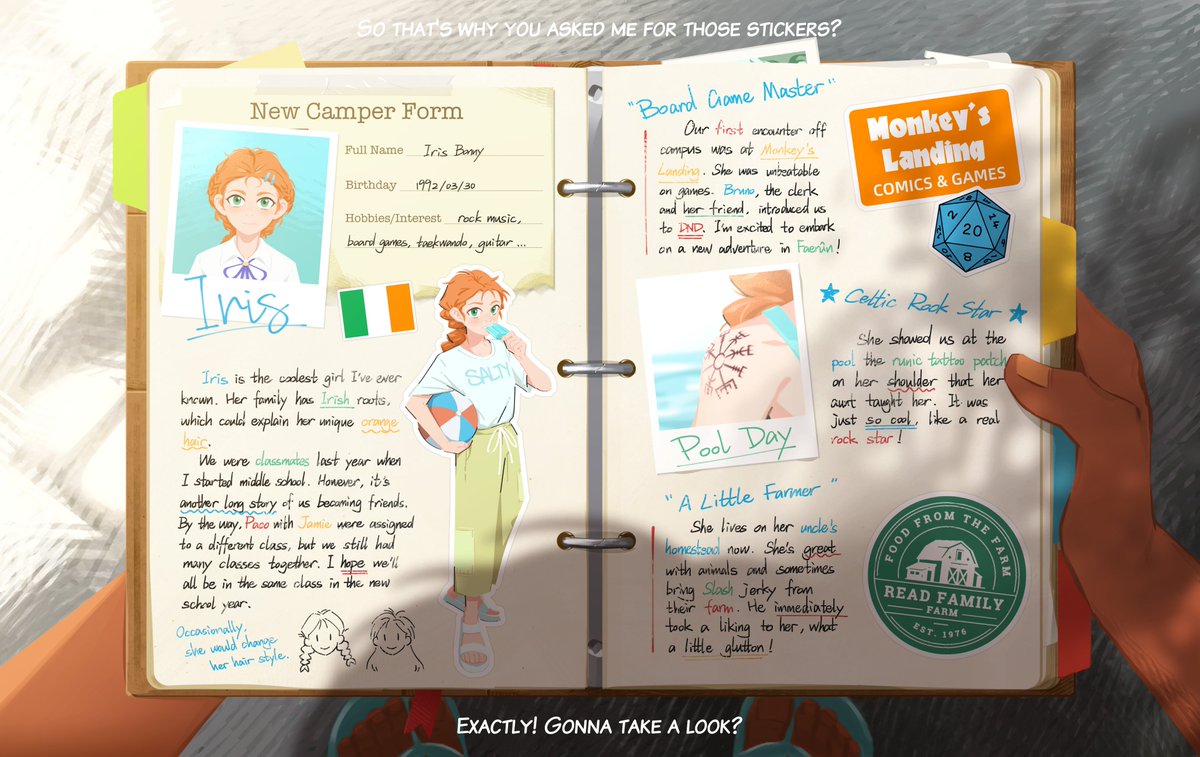 SO THAT'S WHY YOU ASKED ME FOR THOSE STICKERS?
New Camper Form
Full Name Iris Bonny
Birthday 1992/03/30
Hobbies/Interest rock music,
board games, taekwando, guitar ...
Iris
SALTY
Iris is the coolest girl I've ever
known. Her family has Irish roots,
which could explain her unique orange
hair.
We were classmates last year when
I started middle school. However, it's
another long story of us becoming friends.
By the way, Paco with Jamie were assigned
to a different class, but we still had
many classes together. I hope we'll
all be in the same class in the new
school year.
Occasionally,
she would change
her hair style.
"Board Game Master"
Our first encounter off
campus was at Monkey's
Landing. She was unbeatable
on games. Bruno, the clerk
and her friend, introduced us
to DND. I'm excited to embark
on a new adventure in Faerûn!
Monkey's
Landing
COMICS & GAMES
2
14
20
8
Pool Day
Celtic Rock Star
She showed us at the
pool the runic tattoo patch
on her shoulder that her
aunt taught her. It was
just so cool, like a real
rock star!
"A Little Farmer"
She lives on her uncle's
homestead now. She's great
with animals and sometimes
bring Slash jerky from
their farm. He immediately
took a liking to her, what
a little glutton!
FOOD FROM THE FARM
READ FAMILY
FARM
EST. 1976
EXACTLY! GONNA TAKE A LOOK?